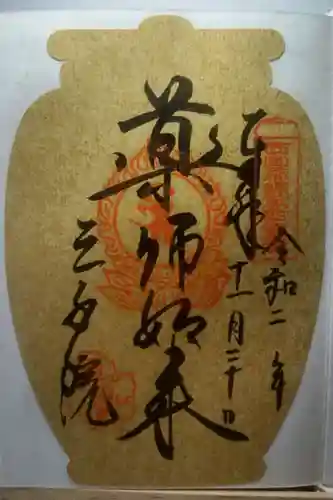 奉拝
令和二年
十一月二十日
薬師如来
院